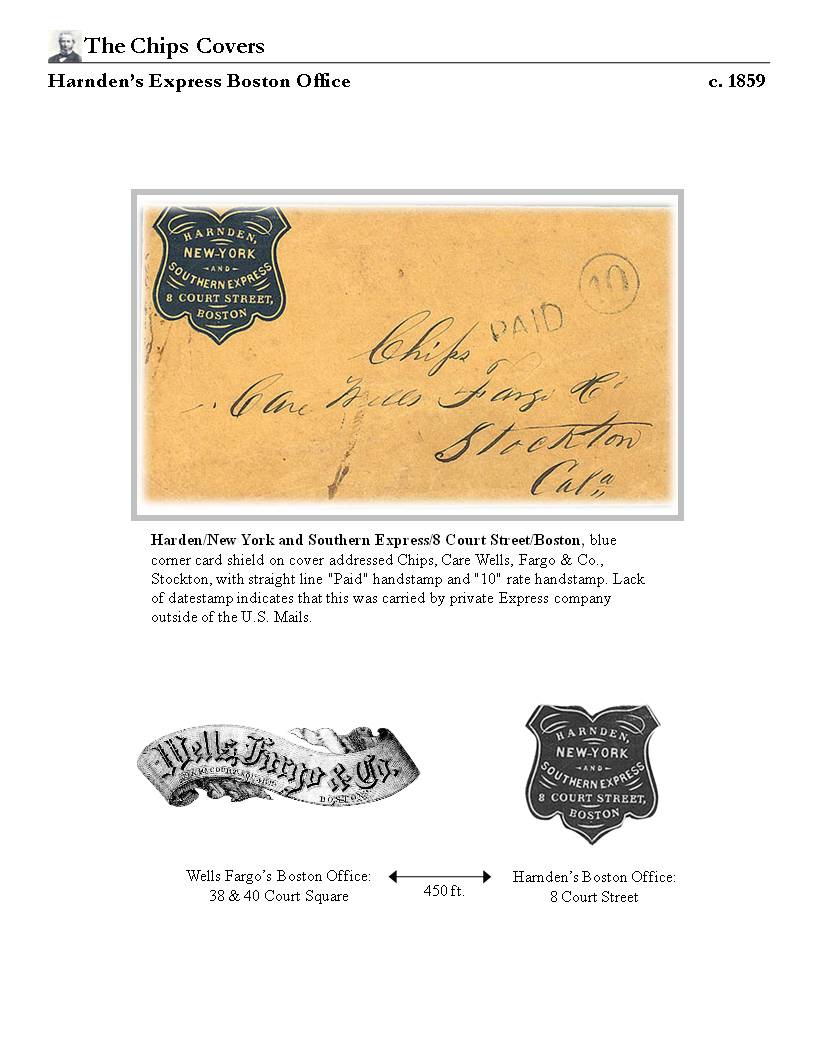 The Chips Covers
Harnden's Express Boston Office c. 1859
HARNDEN,
NEW-YORK
-AND-
SOUTHERN EXPRESS
8 COURT STREET,
BOSTON
10
PAID
Chips
Care Wells Fargo & Co
Stockton
Cala
Harden/New York and Southern Express/8 Court Street/Boston, blue
corner card shield on cover addressed Chips, Care Wells, Fargo & Co.,
Stockton, with straight line "Paid" handstamp and "10" rate handstamp. Lack
of datestamp indicates that this was carried by private Express company
outside of the U.S. Mails.
Wells, Fargo & Co.
BOSTON
HARNDEN,
NEW-YORK
-AND-
SOUTHERN EXPRESS
8 COURT STREET,
BOSTON
Wells Fargo's Boston Office:
38 & 40 Court Square
450 ft.
Harnden's Boston Office:
8 Court Street